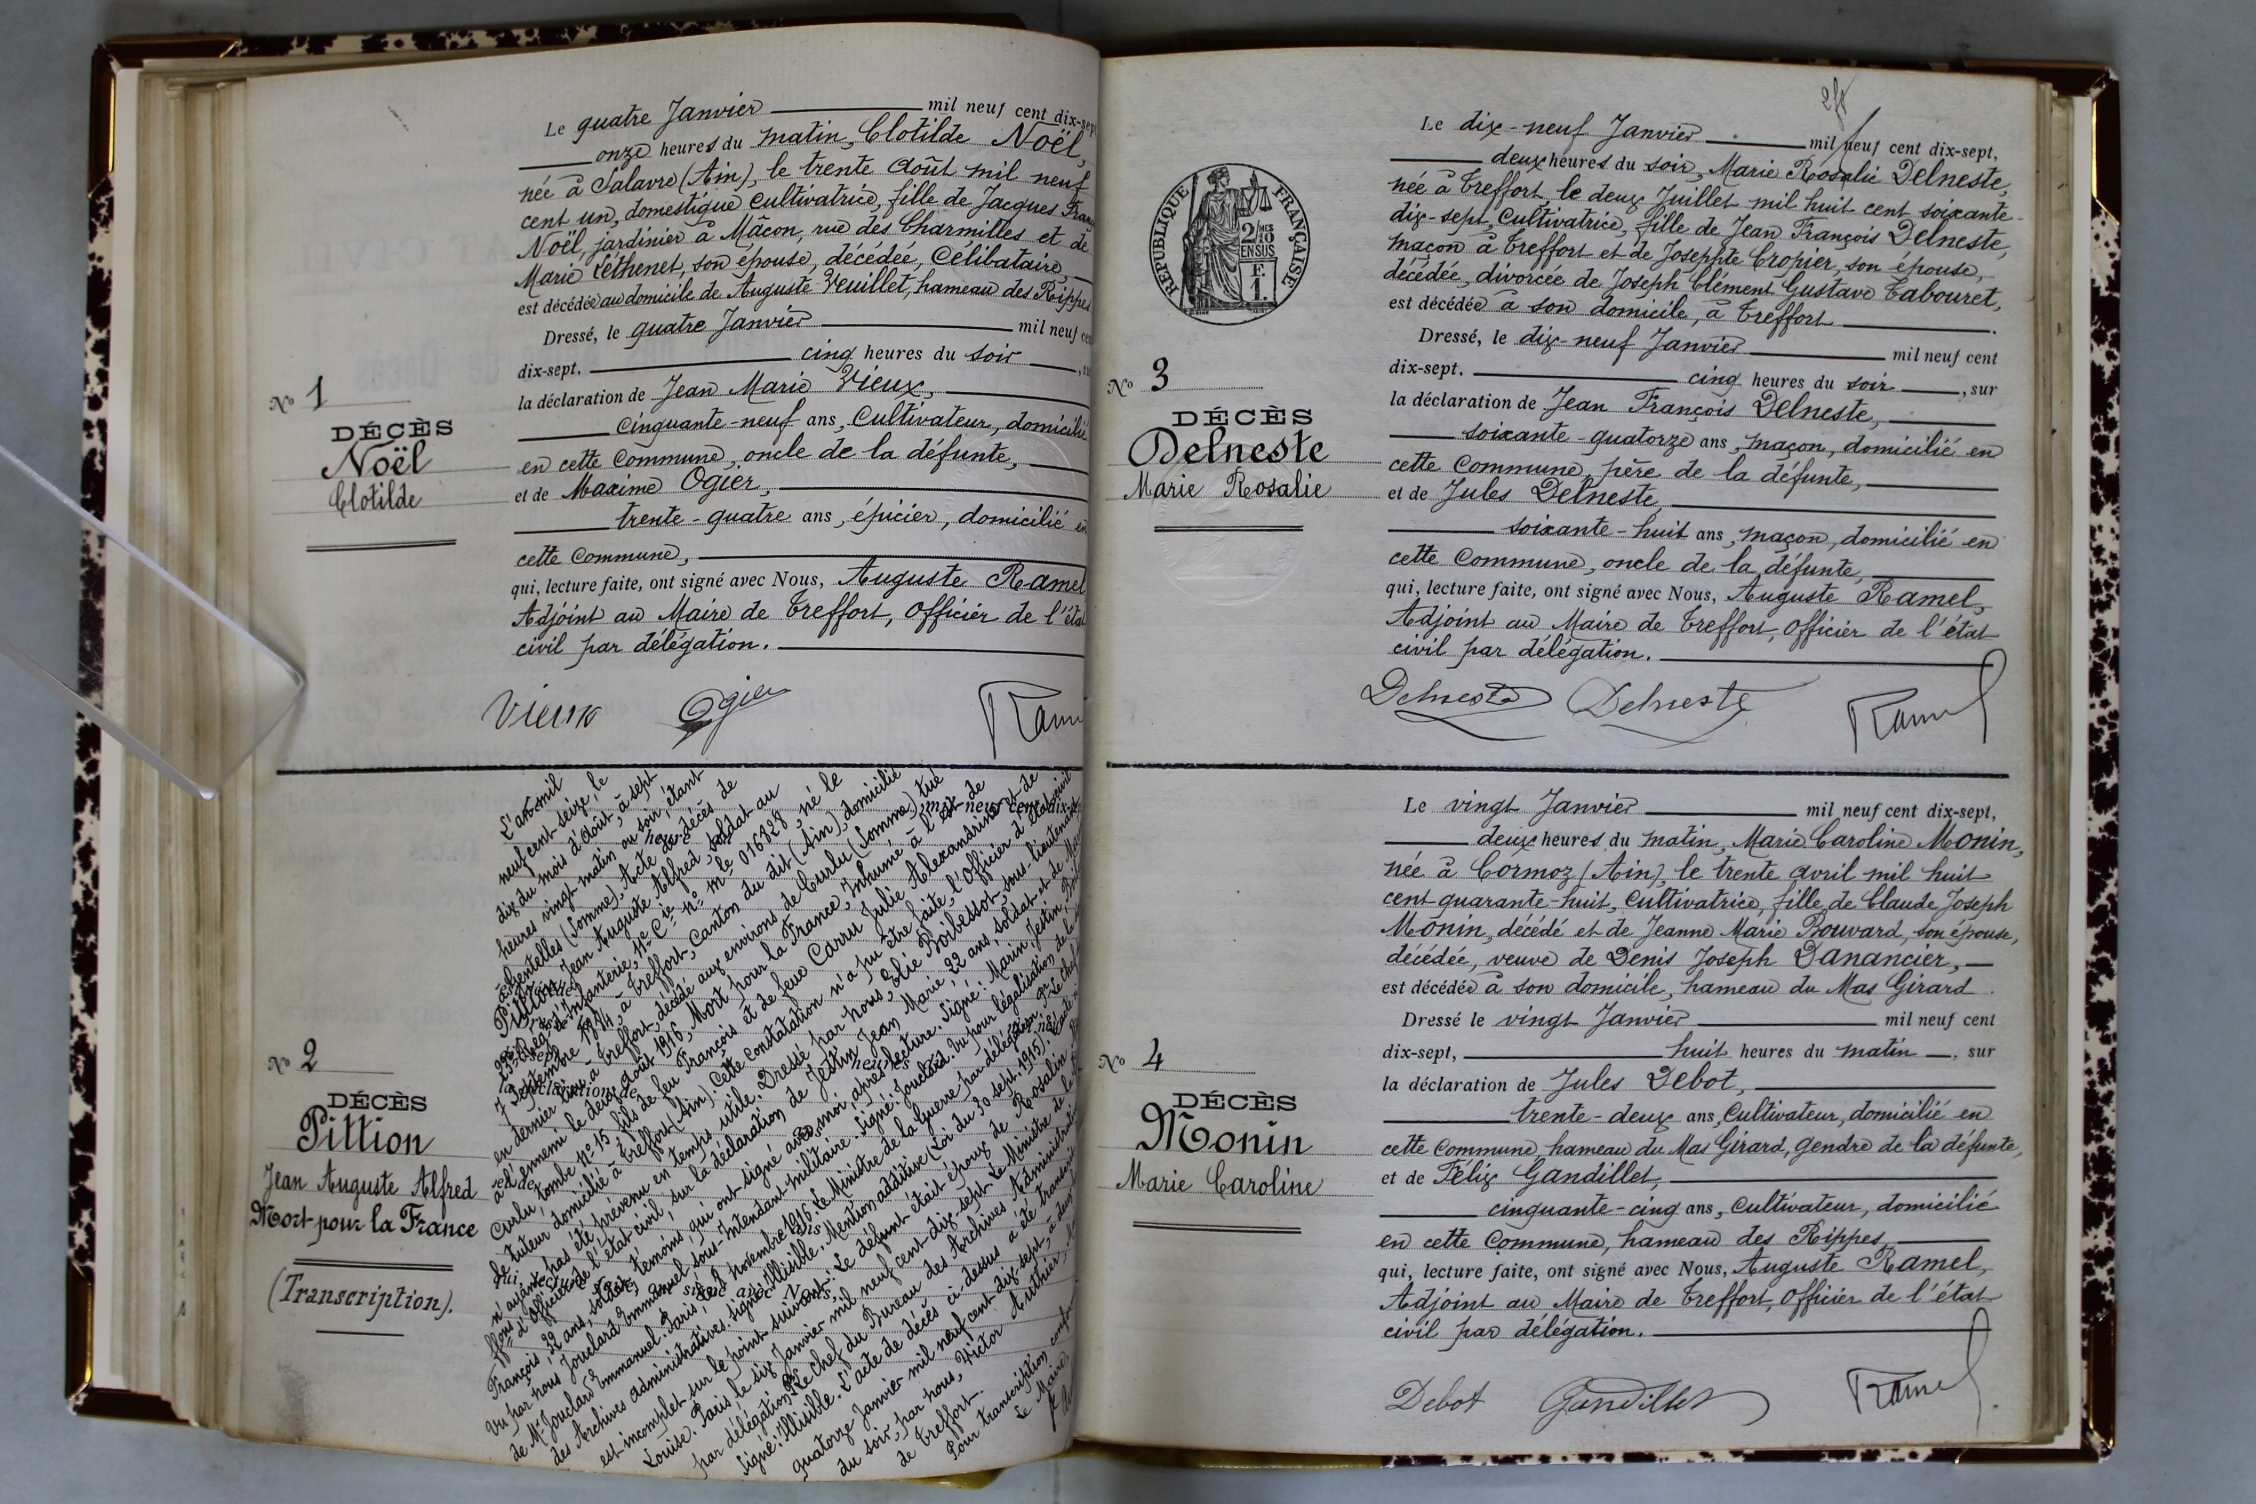 Le quatre Janvier mil neuf cent dix-sept
onze heures du matin, Clotilde Noël,
née à Salavre (Ain), le trente Août mil neuf
cent un, domestique cultivatrice, fille de Jacques
Noël, jardinier à Mâcon, rue des Charmilles et de
Marie Léthenet, son épouse, décédée, Célibataire,
est décédée au domicile de Auguste Veuillet, hameau des Rippes
Dressé, le quatre Janvier mil neuf cent
dix-sept, cinq heures du soir
la déclaration de Jean Marie Vieux,
cinquante-neuf ans, Cultivateur, domicilié
en cette Commune, oncle de la défunte,
et de Maxime Ogier,
trente-quatre ans, épicier, domicilié en
cette Commune,
qui, lecture faite, ont signé avec Nous, Auguste Ramel
Adjoint au Maire de Treffort, Officier de l'état
civil par délégation.
Vieux Ogier Ramel
No 1
DÉCÈS
Noël
Clotilde
L'an mil
neuf cent seize, le
dix du mois d'Août, à sept
heures vingt matin ou soir, étant
à Chentelles (Somme), Acte de décès de
Pittion Jean Auguste Alfred, soldat au
d'Infanterie, 11e Cie No Mle 016128, né le
7 Septembre à Treffort, Canton du dit (Ain), domicilié
en dernier lieu à Treffort, décédé aux environs de Curlu (Somme) tué
à l'ennemi le deux Août 1916, Mort pour la France, Inhumé à l'est de
Curlu, tombe no 15, fils de feu François et de feue Carru Julie Alexandrine et de
tuteur domicilié à Treffort (Ain). Cette Constatation n'a pu être faite, l'Officier d'état civil
n'ayant pas été prévenu en temps utile. Dressé par nous, Elie Borbessot, sous-lieutenant
ffons d'Officier de l'état civil, sur la déclaration de Jestin Jean Marie, 22 ans, soldat et de
François, 32 ans, soldat, témoins, qui ont signé avec moi après lecture. Signé: Marin, Jestin,
Vu par nous Jouclard Emmanuel sous-Intendant militaire. Signé: Jouclard. Vu pour légalisation de la
de Mr Jouclard Emmanuel. Paris, le novembre 1916. Le Ministre de la Guerre par délégation, Pr Le chef
des Archives administratives. Signé: Illisible. Mention additive (Loi du 30 sept. 1915).
est incomplet sur le point suivant: Le défunt était époux de Rosalin
Louise. Paris, le six Janvier mil neuf cent dix-sept. Le Ministre de la
par délégation Le chef du Bureau des Archives Administratives
Signé: Illisible. L'acte de décès ci-dessus a été transcrit
quatorze Janvier mil neuf cent dix-sept, à deux
du soir, par nous, Victor Authier,
de Treffort.
Pour transcription
Le Maire,
No 2
DÉCÈS
Pittion
Jean Auguste Alfred
Mort pour la France
(Transcription).
Le dix-neuf Janvier mil neuf cent dix-sept,
deux heures du soir, Marie Rosalie Delneste,
née à Treffort, le deux Juillet mil huit cent soixante-
dix-sept, Cultivatrice, fille de Jean François Delneste,
maçon à Treffort et de Joseppte Cropier, son épouse,
décédée, divorcée de Joseph Clément Gustave Tabouret,
est décédée à son domicile, à Treffort
Dressé, le dix-neuf Janvier mil neuf cent
dix-sept, cinq heures du soir, sur
la déclaration de Jean François Delneste,
soixante-quatorze ans, maçon, domicilié en
cette Commune, père de la défunte,
et de Jules Delneste,
soixante-huit ans, maçon, domicilié en
cette Commune, oncle de la défunte,
qui, lecture faite, ont signé avec Nous, Auguste Ramel,
Adjoint au Maire de Treffort, Officier de l'état
civil par délégation.
Delneste Delneste Ramel
RÉPUBLIQUE FRANÇAISE
2/10 MES
EN SUS
F.
1.
No 3
DÉCÈS
Delneste
Marie Rosalie
Le vingt Janvier mil neuf cent dix-sept,
deux heures du matin, Marie Caroline Monin,
née à Cormoz (Ain), le trente avril mil huit
cent quarante-huit, Cultivatrice, fille de Claude Joseph
Monin, décédé et de Jeanne Marie Bouvard, son épouse,
décédée, veuve de Denis Joseph Danancier,
est décédée à son domicile, hameau du Mas Girard.
Dressé le vingt Janvier mil neuf cent
dix-sept, huit heures du matin, sur
la déclaration de Jules Debot,
trente-deux ans, Cultivateur, domicilié en
cette Commune, hameau du Mas Girard, gendre de la défunte,
et de Félix Gandillet,
cinquante-cinq ans, Cultivateur, domicilié
en cette Commune, hameau des Rippes,
qui, lecture faite, ont signé avec Nous, Auguste Ramel,
Adjoint au Maire de Treffort, Officier de l'état
civil par délégation.
Debot Gandillet Ramel
No 4
DÉCÈS
Monin
Marie Caroline